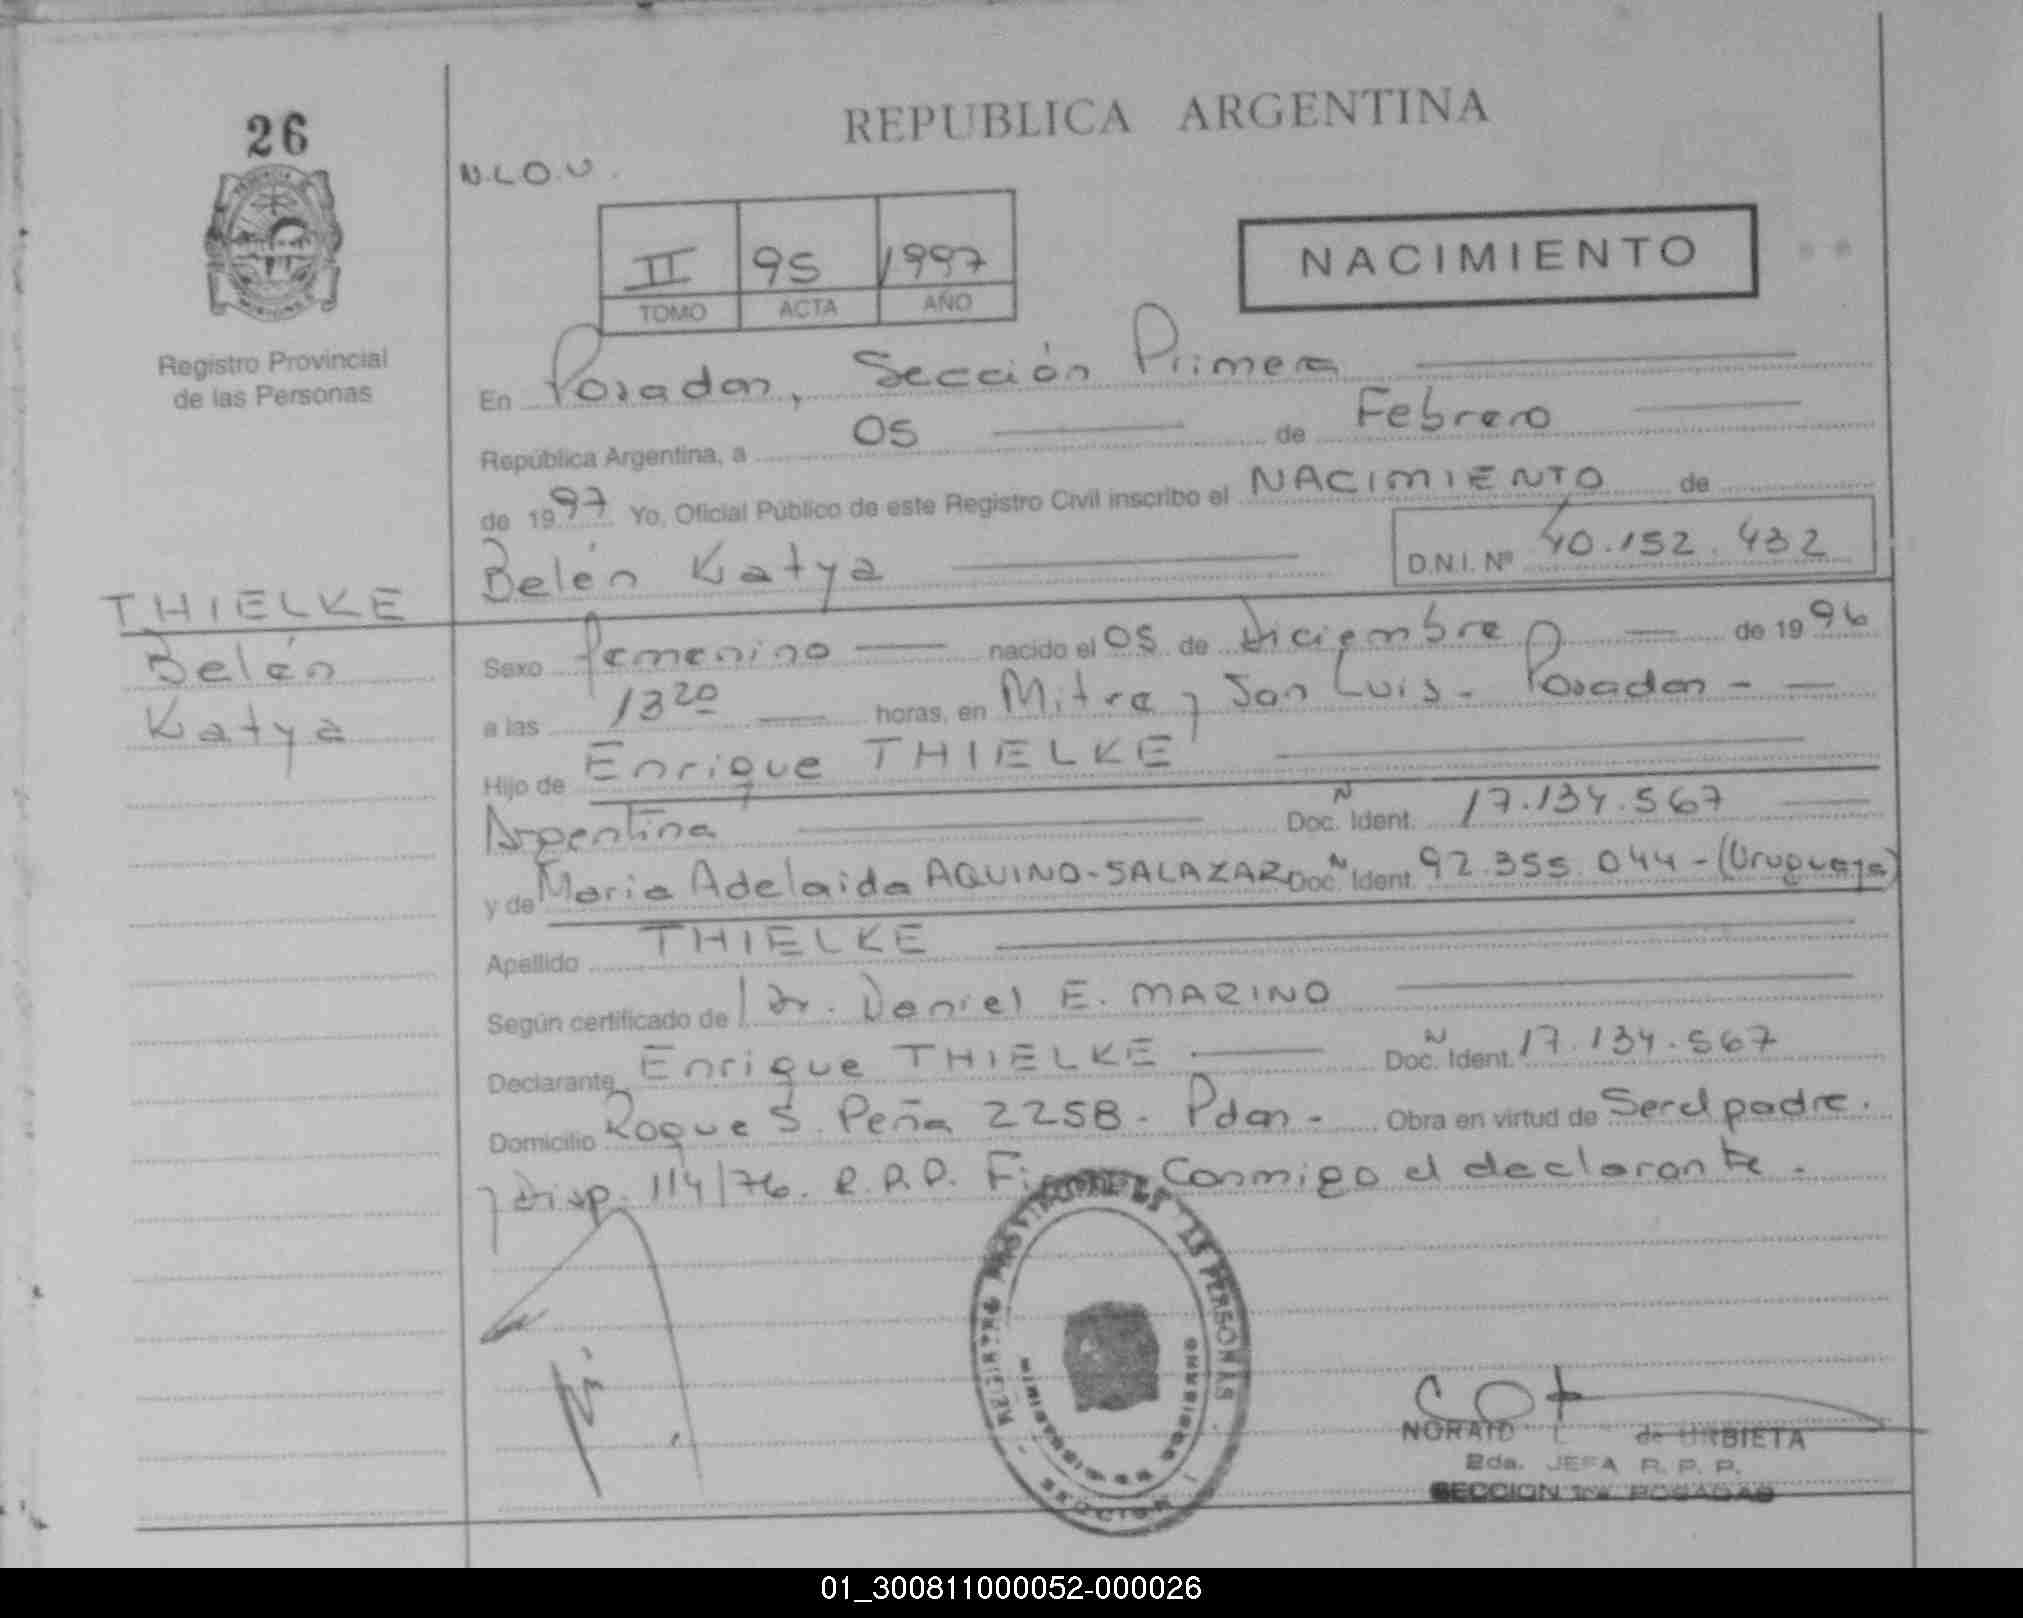 26
REPUBLICA ARGENTINA
N.L.O.U.
II 95 1997
TOMO ACTA AÑO
NACIMIENTO
Registro Provincial
de las Personas
En Posadas, Sección Primera
República Argentina, a 05 de Febrero
de 1997 Yo, Oficial Público de este Registro Civil inscribo el NACIMIENTO de
Belén Katya D.N.I. Nº 40.152.432
THIELKE
Belén
Katya
Sexo femenino nacido el 05 de Diciembre de 1996
a las 13 20 horas, en Mitre y San Luis - Posadas -
Hijo de Enrique THIELKE
Argentina Doc. Ident. 17.134.567
y de Maria Adelaida AQUINO-SALAZAR Doc. Ident. 92.355.044 - (Uruguaya)
Apellido THIELKE
Según certificado de Dr. Daniel E. MARINO
Declarante Enrique THIELKE Doc. Ident. 17.134.567
Domicilio Roque S. Peña 2258 - Pdas - Obra en virtud de Ser el padre.
y Disp. 114/76. R.P.P. Conmigo el declarante.
REGISTRO PROVINCIAL DE LAS PERSONAS
MISIONES
NORAID de URBIETA
2da. JEFA R. P. P.
SECCION 1ra. POSADAS
01_300811000052-000026